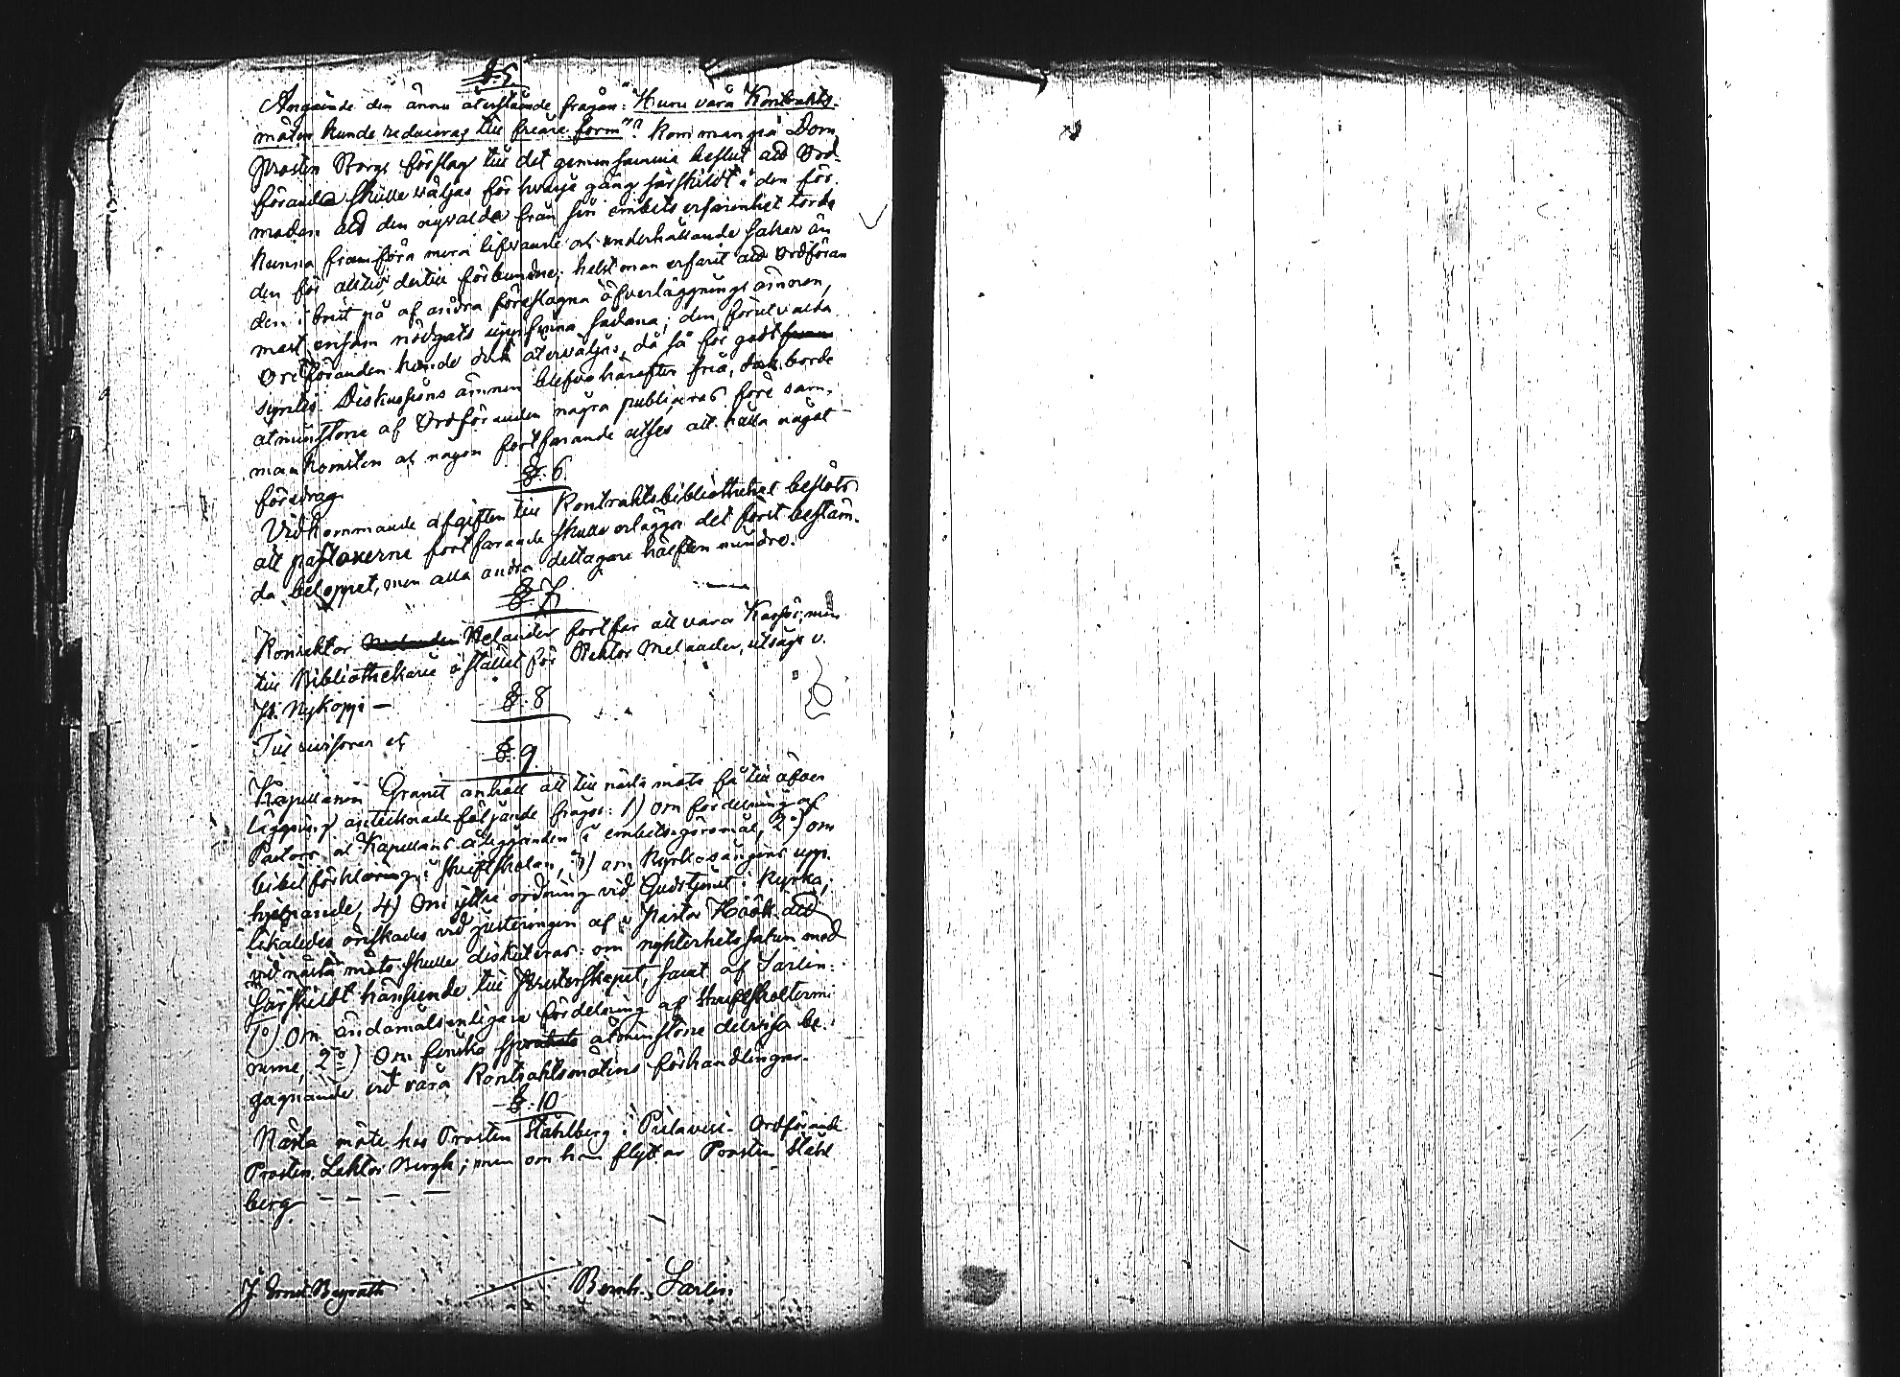 § 5
Angående den ännu återstående frågan: "Huru våra Kontrakts-
möten kunde reduceras till friare form"? kom man på Dom
Prosten Borgs förslag till det gemensamma beslut att Ord-
förande skulle väljas för hvarje gång särskildt i den för-
modan att den nyvalde från sin embets erfarenhet torde
kunna framföra mera lifvande och underhållande saker än
den för alltid dertill förbundne; helst man erfarit att Ordföran
den i brist på af andra föreslagna öfverläggnings ämnen,
mest ensam nödgats uppfinna sådana; den förut valda
Ordföranden kunde dock återväljas, då så för godt
synes. Diskussions ämnen blefvo härefter fria, dock borde
åtminstone af Ordföranden några publiceras före sam-
mankomsten och någon fortfarande utses att hålla något
föredrag
§. 6
Vidkommande afgiften till Kontraktsbibliotheket beslöts
att pastorerne fortfarande skulle erlägga det förut bestäm-
da beloppet, men alla andra deltagare hälften mindre.
§. 7
Konrektor Helander fortfar att vara Kassör, men
till Bibliothekarie i stället för Rektor Melander, utsågs v.
P. Nykopp —
§. 8
Till revisorer
§. 9.
Kapellanen Granit anhöll att till nästa möte få till öfver
läggning antecknade följande frågor: 1) om fördelning af
Pastors och Kapellans åligganden i embetsgöromål, 2o) om
bibelförklaring i skriftskolan, 3) om Kyrkosångens upp-
hjelpande, 4) Om yttre ordning vid Gudstjenst i Kyrka;
likaledes önskades vid justeringen af Pastor Höök att
vid nästa möte skulle diskuteras: om nykterhetssaken med
särskildt hänseende till Presterskapet, samt af Sarlin:
1o) Om ändamålsenligare fördelning af skriftskoltermi
nerne, 2o) Om finska språkets åtminstone delvisa be-
gagnande vid våra Kontraktsmötens förhandlingar.
§. 10
Nästa möte hos Prosten Ståhlberg i Pielavesi. Ordförande
Prosten, Lektor Bergh; men om han flyttar Prosten Ståhl
berg — — — —
Bernh. Sarlin